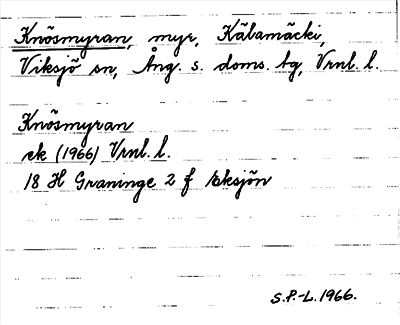 Knösmyran, myr, Källamäcki,
Viksjö sn, Ång. s. doms. tg, Vrnl. l.
Knösmyran
ek (1966) Vrnl. l.
18 H Graninge 2 f Eksjön
S.P.-L. 1966.